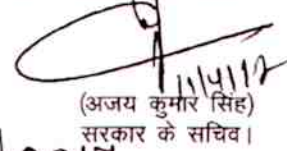 11/4/12
(अजय कुमार सिंह)
सरकार के सचिव।